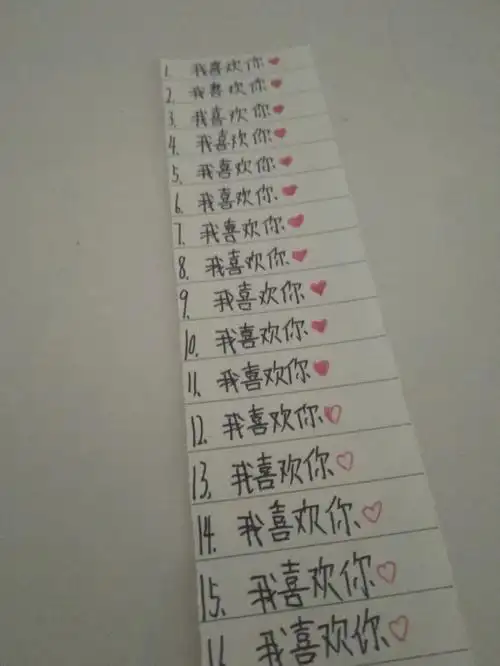 1. 我喜欢你
2. 我喜欢你
3. 我喜欢你
4. 我喜欢你
5. 我喜欢你
6. 我喜欢你
7. 我喜欢你
8. 我喜欢你
9. 我喜欢你
10. 我喜欢你
11. 我喜欢你
12. 我喜欢你
13. 我喜欢你
14. 我喜欢你
15. 我喜欢你
我喜欢你